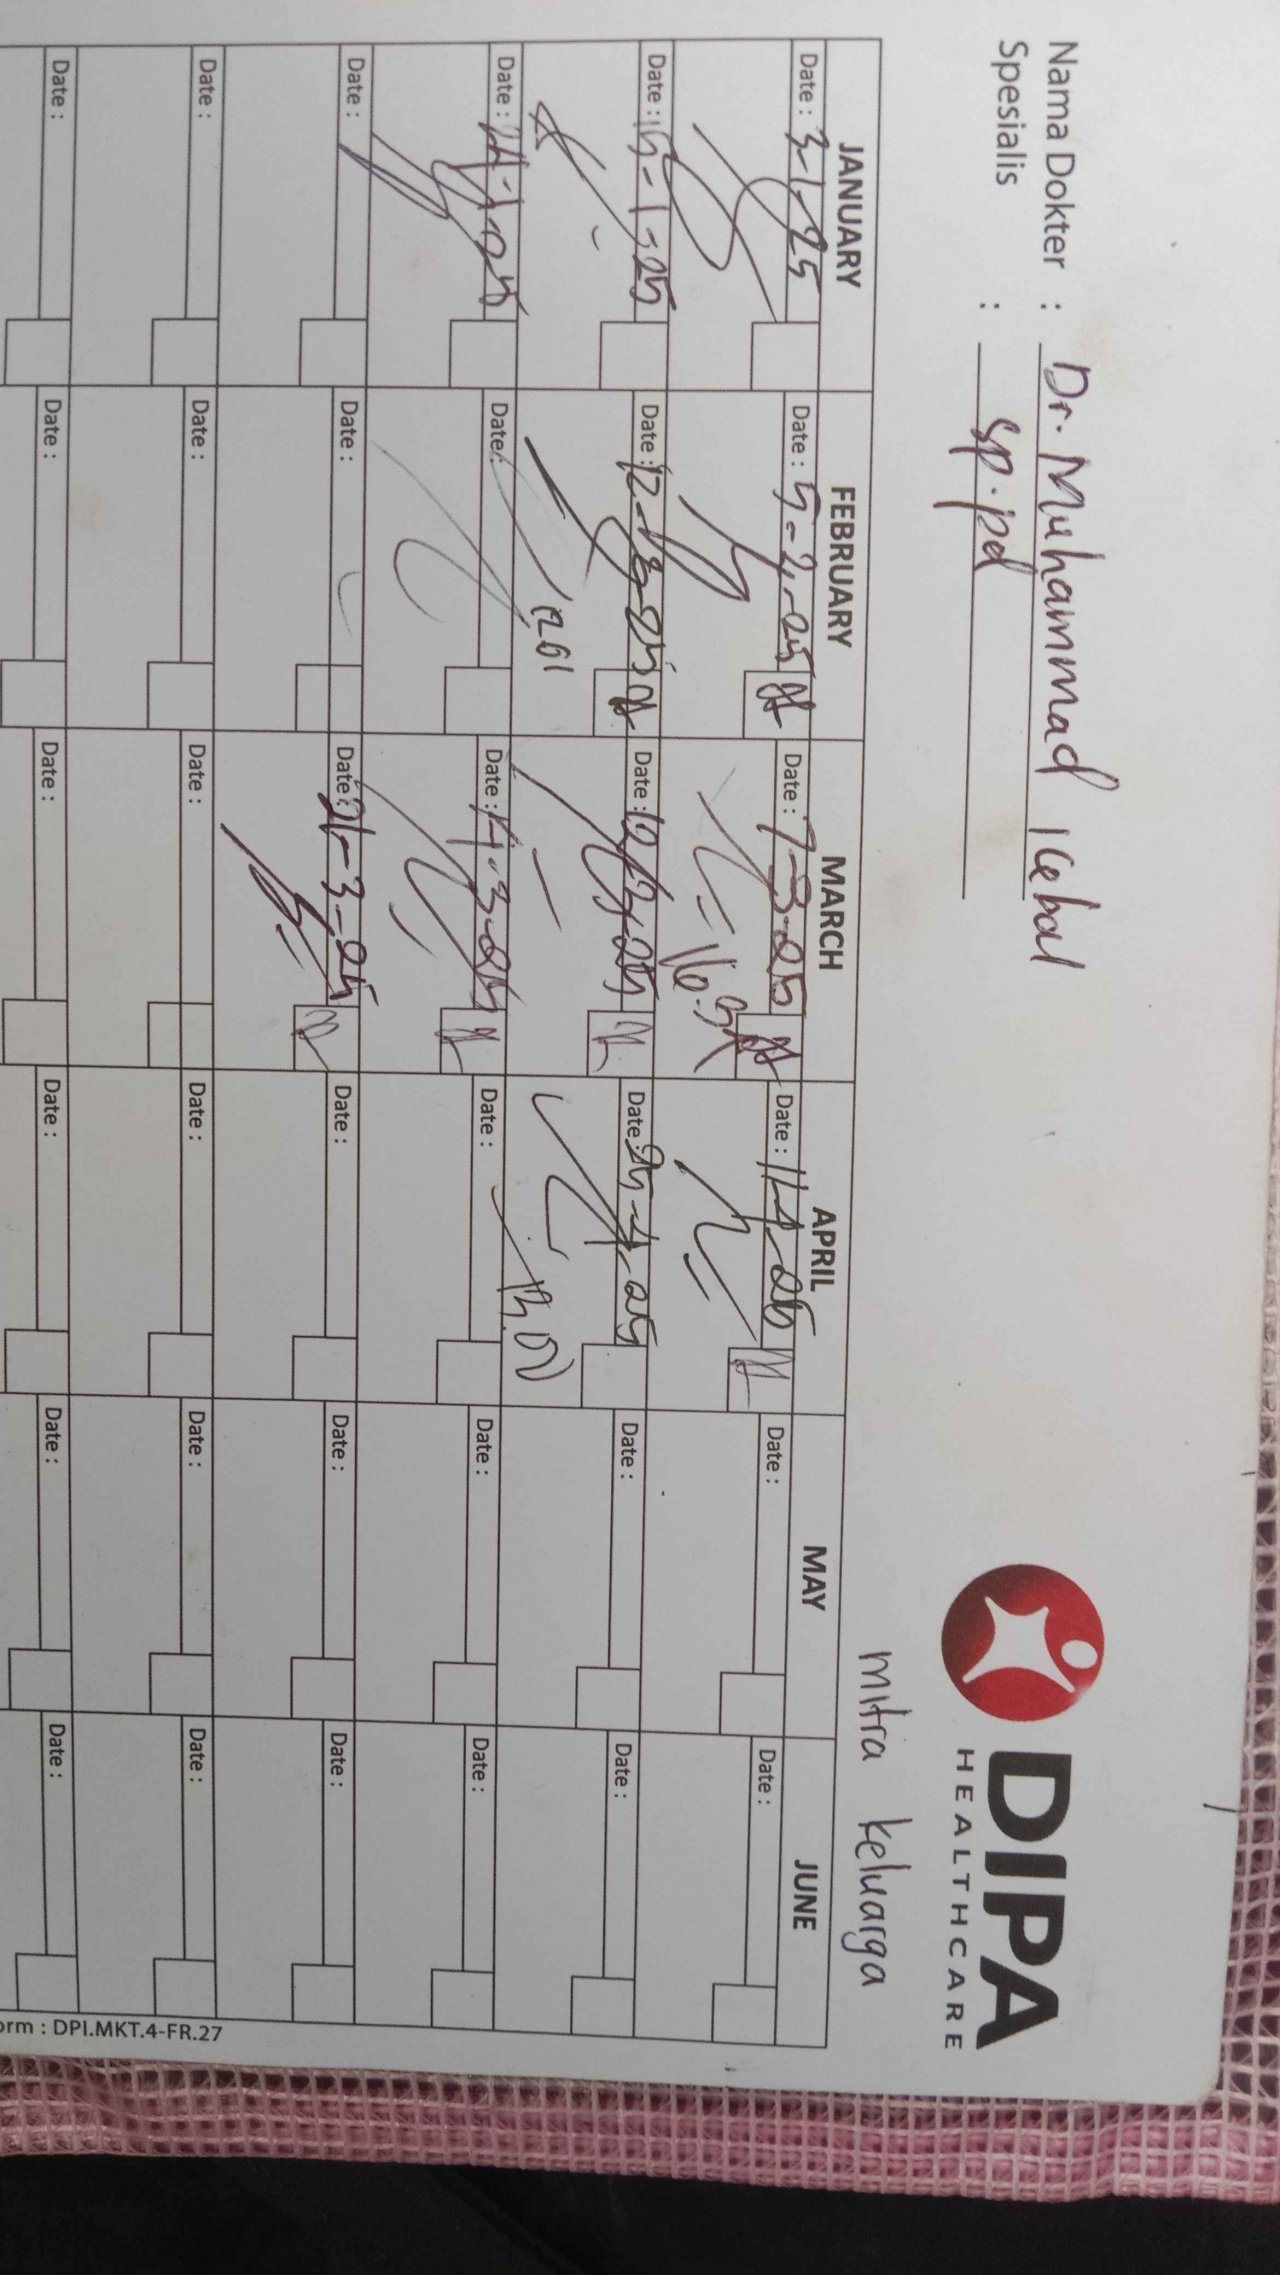 Nama Dokter : Dr. Muhammad Icebal
Spesialis : Sp.pd
DIPA
HEALTHCARE
mitra keluarga
JANUARY FEBRUARY MARCH APRIL MAY JUNE
Date : 3-1-25 Date : 5-2-25 Date : 7-3-25 Date : 11-4-25 Date : Date :
16.32
Date : 15-1-25 Date : 12-2-25 Date : 12-3-25 Date : 25-4-25 Date : Date :
Date : 24-1-25 Date : Date : 14-3-25 Date : Date : Date :
Date : Date : Date : 21-3-25 Date : Date : Date :
Date : Date : Date : Date : Date : Date :
Date : Date : Date : Date : Date : Date :
orm : DPI.MKT.4-FR.27